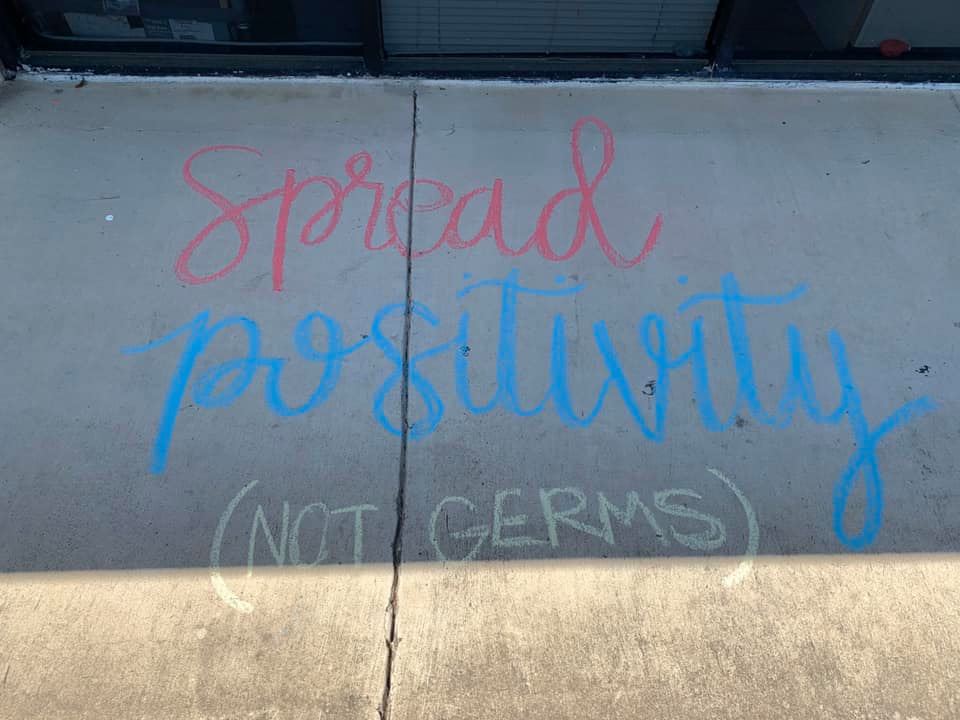 Spread
positivity
(NOT GERMS)